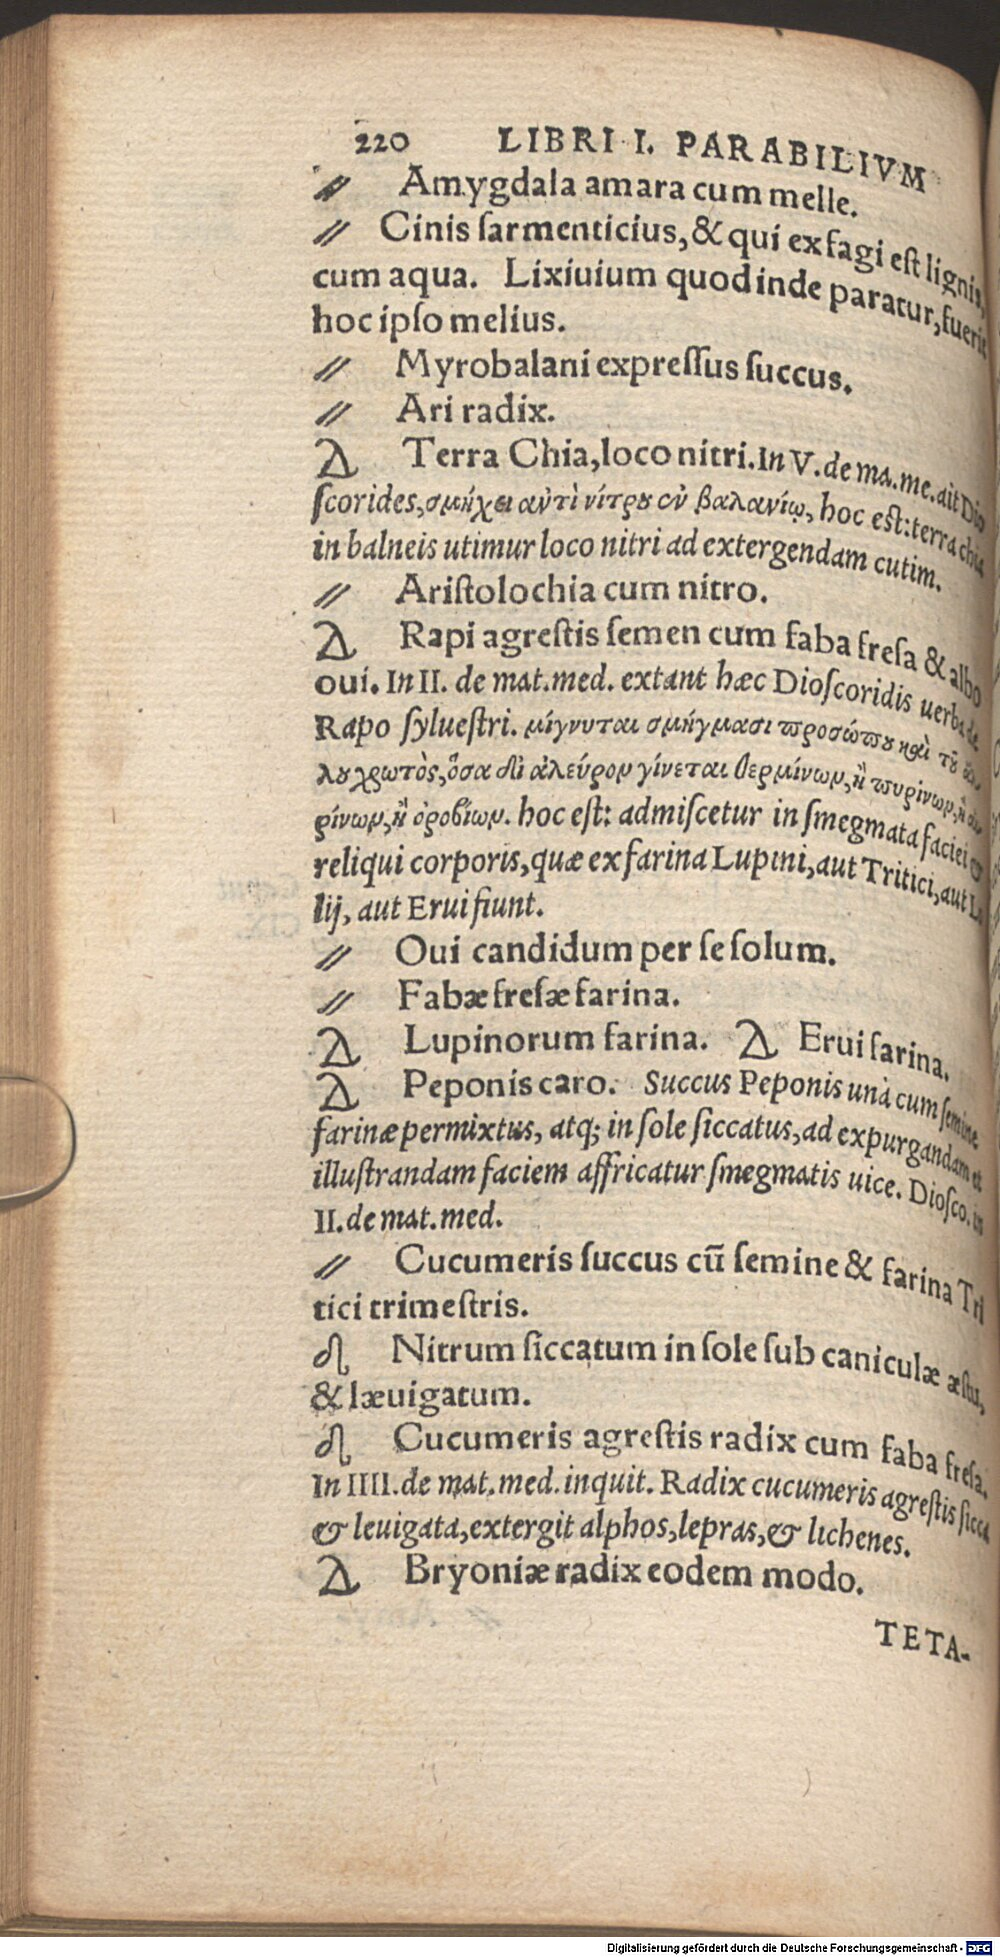 220 LIBRI I. PARABILIVM
〃 Amygdala amara cum melle.
〃 Cinis ſarmenticius, & qui ex fagi eſt lignis,
cum aqua. Lixiuium quod inde paratur, fuerit
hoc ipſo melius.
〃 Myrobalani expreſſus ſuccus.
〃 Ari radix.
Terra Chia, loco nitri. In V. de ma. me. ait Dio
ſcorides, σμήχει αὐτὶ νίτρου ἐν βαλανίῳ, hoc eſt: terra chia
in balneis utimur loco nitri ad extergendam cutim.
〃 Ariſtolochia cum nitro.
Rapi agreſtis ſemen cum faba freſa & albo
oui. In II. de mat. med. extant hæc Dioſcoridis uerba de
Rapo ſylueſtri. μίγνυται σμήγμασι προσώπου καὶ τοῦ
λου χρωτὸς, ὅσα δι᾽ ἀλεύρου γίνεται θερμίνων, ἢ πυρίνων, ἢ
ρίνων, ἢ ὀροβίων. hoc eſt: admiſcetur in ſmegmata faciei &
reliqui corporis, quæ ex farina Lupini, aut Tritici, aut Lo
lij, aut Erui fiunt.
〃 Oui candidum per ſe ſolum.
〃 Fabæ freſæ farina.
Lupinorum farina. Erui farina.
Peponis caro. Succus Peponis unà cum ſemine
farinæ permixtus, atq; in ſole ſiccatus, ad expurgandam et
illuſtrandam faciem affricatur ſmegmatis uice. Dioſco. in
II. de mat. med.
〃 Cucumeris ſuccus cū ſemine & farina Tri
tici trimeſtris.
Nitrum ſiccatum in ſole ſub caniculæ æſtu,
& læuigatum.
Cucumeris agreſtis radix cum faba freſa.
In IIII. de mat. med. inquit. Radix cucumeris agreſtis ſicca
& leuigata, extergit alphos, lepras, & lichenes.
Bryoniæ radix eodem modo.
TETA-
Digitalisierung gefördert durch die Deutsche Forschungsgemeinschaft - DFG